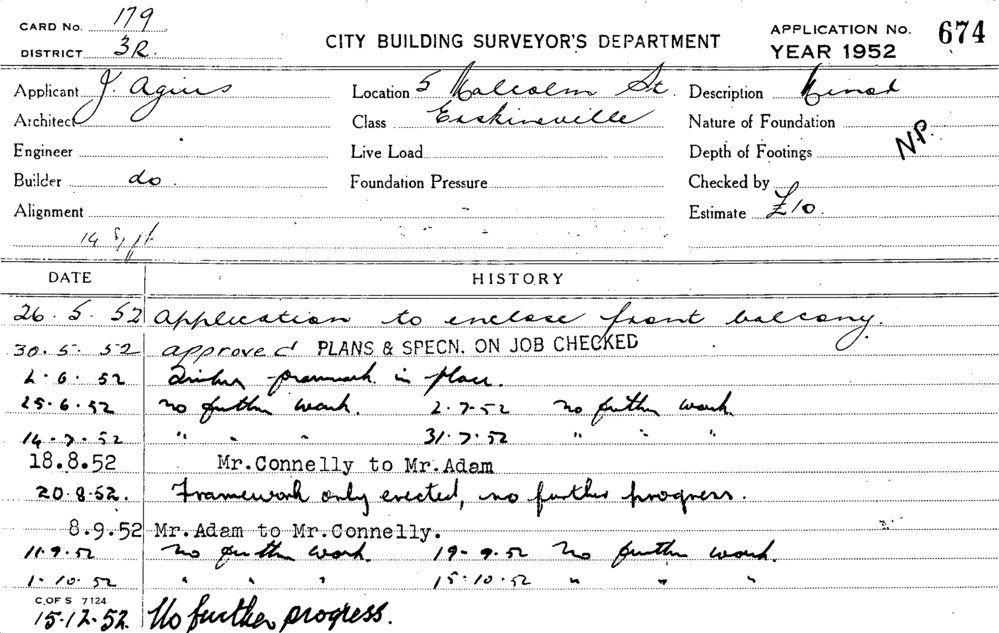 CARD NO. 179
DISTRICT 3R.
CITY BUILDING SURVEYOR'S DEPARTMENT
APPLICATION NO. 674
YEAR 1952
Applicant J. Agius Location 5 Malcolm St. Description Minor
Architect Class Erskineville Nature of Foundation
Engineer Live Load Depth of Footings N.P.
Builder do. Foundation Pressure Checked by
Alignment Estimate £10.
DATE HISTORY
26.5.52 Application to enclose front balcony.
30.5.52 approved PLANS & SPECN. ON JOB CHECKED
2.6.52 Timber framework in place.
25.6.52 No further work. 2.7.52 No further work.
14.7.52 " " " 31.7.52 " " "
18.8.52 Mr.Connelly to Mr.Adam
20.8.52. Framework only erected, no further progress.
8.9.52 Mr.Adam to Mr.Connelly.
11.9.52 No further work 19.9.52 No further work.
1.10.52 " " " 15.10.52 " " "
C. OF S 7124
15.12.52. No further progress.